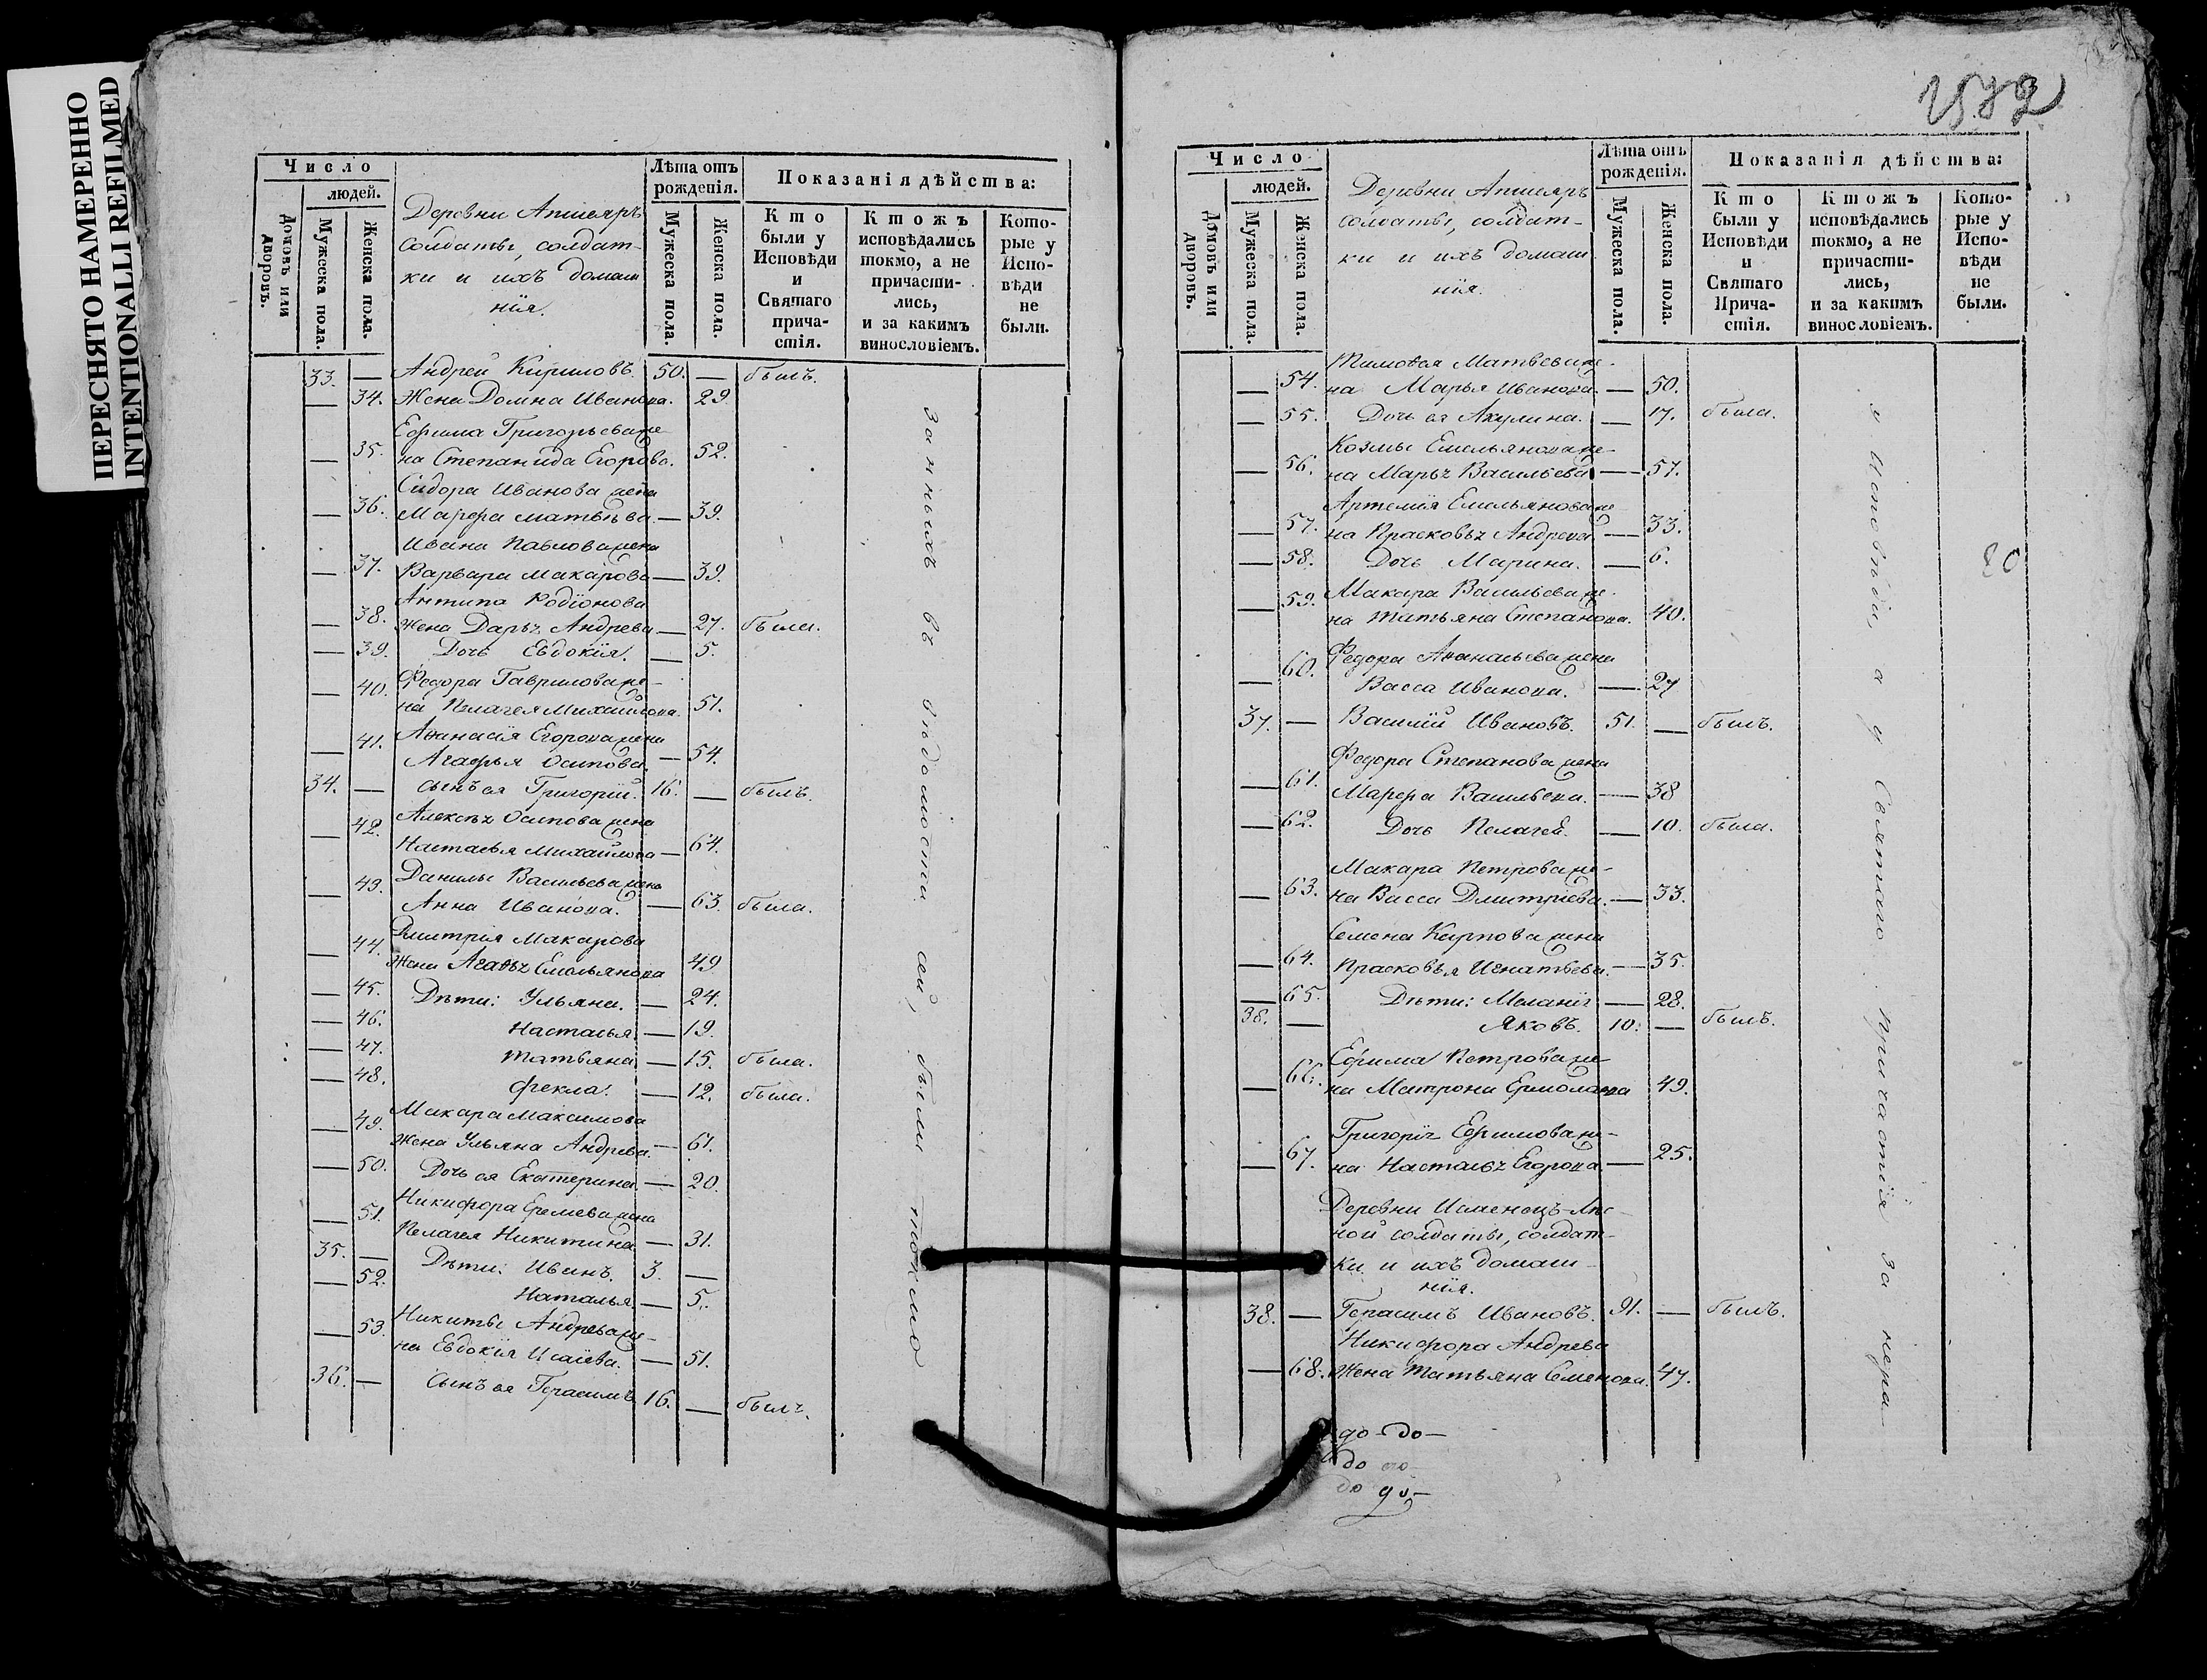 ПЕРЕСНЯТО НАМЕРЕННО
INTENTIONALLI REFILMED
Число
людей.
Домовъ или дворовъ.
Мужеска пола.
Женска пола.
Деревни Апшеяръ
солдаты, солдат-
ки и ихъ домаш
нія.
Лѣта отъ рожденія.
Мужеска пола.
Женска пола.
Показанія дѣйства:
Кто были у Исповѣди и Святаго прича-стія.
Ктожъ исповѣдались токмо, а не причасти-лись, и за какимъ винословіемъ.
Кото-рые у Испо-вѣди не были.
33. — Андрей Кириловъ. 50. — былъ.
— 34. Жена Домна Иванова. 29
Ефима Григорьева же-
— 35. на Степанида Егорова. 52.
Сидора Иванова жена
— 36. Марфа Матвѣва. — 39.
Ивана Павлова жена
— 37. Варвара Макарова — 39.
Антипа Родіонова
— 38. жена Дарьz Андрева — 27. была.
— 39. Дочь Евдокія. — 5.
Федора Гаврилова же-
— 40. на Пелагея Михайлова. 51.
Афанасія Егорова жена
— 41. Агафья Осипова. — 54.
34. — сынъ ея Григорій. 16. — былъ.
Алексѣz Осипова жена
— 42. Настасья Михайлова — 64.
Данилы Васильева жена
— 43. Анна Иванова. — 63. была.
Дмитрія Макарова
— 44. жена Агафьz Емельянова 49
— 45. Дѣти: Ульяна. — 24.
— 46. Настасья — 19.
— 47. Татьяна — 15. была.
— 48. Фекла. — 12. была.
Макара Максимова
— 49. жена Ульяна Андрева. — 61.
— 50. Дочь ея Екатерина — 20.
Никифора Еремева жена
— 51. Пелагея Никитина — 31.
35. — Дѣти: Иванъ. 3. —
— 52. Наталья — 5.
Никиты Андрева же-
— 53. на Евдокія Исаіева. — 51.
36. — Сынъ ея Герасимъ 16. — былъ.
занныхъ въ вѣдомости сей, были токмо
Число
людей.
Домовъ или дворовъ.
Мужеска пола.
Женска пола.
Деревни Апшеяръ
солдаты, солдат-
ки и ихъ домаш
нія.
Лѣта отъ рожденія.
Мужеска пола.
Женска пола.
Показанія дѣйства:
Кто были у Исповѣди и Святаго Прича-стія.
Ктожъ исповѣдались токмо, а не причасти-лись, и за какимъ винословіемъ.
Кото-рые у Испо-вѣди не были.
Тимофея Матвева же-
— 54. на Марья Иванова. — 50.
— 55. Дочь ея Акулина. — 17. была.
Козмы Емельянова же-
— 56. на Марьz Васильева — 57.
Артемія Емельянова же
— 57. на Прасковьz Андрева — 33.
— 58. Дочь Марина. — 6.
Макара Васильева же-
— 59. на Татьяна Степанова. 40.
Федора Афанасьева жена
— 60. Васса Иванова. — 27
37. — Василій Ивановъ. 51. — былъ.
Федора Степанова жена
— 61. Марфа Васильева. — 38
— 62. Дочь Пелагея. — 10. была.
Макара Петрова же-
— 63. на Васса Дмитріева. — 33.
Семена Карпова жена
— 64. Прасковья Игнатьева. — 35.
— 65. Дѣти: Меланія — 28.
38. — Яковъ. 10. — былъ.
Ефима Петрова же
— 66. на Матрона Ермолаева 49.
Григоріz Ефимова же-
— 67. на Настасьz Егорова. — 25.
Деревни Исменецъ-Лѣс-
ной солдаты, солдат-
ки и ихъ домаш-
нія.
38. — Герасимъ Ивановъ. 91. — былъ.
Никифора Андрева
— 68. жена Татьяна Семенова. 47.
у Исповѣди, а у Святаго Причастія за нера-
80
до-до-
до
до до-